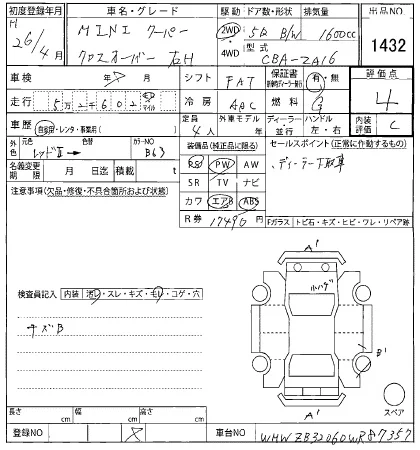 初度登録年月 車名・グレード 駆動 ドア数・形状 排気量 出品NO
H 26/4月 MINI クーパー 2WD 5D B/W 1600cc 1432
クロスオーバー 右H 4WD 型式 CBA-ZA16
車検 年 月 シフト FAT 保証書 有・無 評価点
走行 5万2千602 km マイル 冷房 AAC 燃料 G 4
車歴 自家用・レンタ・事業用( ) 定員 4人 外車モデル 年 ディーラー・並行 ハンドル 左・右 内装評価 C
外色 元色 レッドⅡ 色替 カラーNO B63 装備品(純正品に限る) セールスポイント(正常に作動するもの)
名義変更期限 月 日迄 積載 t PS PW AW ディーラー下取車
注意事項(欠品・修復・不具合箇所および状態) SR TV ナビ
カワ エアB ABS
R券 17490円 Fガラス トビ石・キズ・ヒビ・ワレ・リペア跡
A'
小ハガ
検査員記入 内装 汚レ・スレ・キズ・モレ・コゲ・穴
キズB
B'
A'
スペア
長さ cm 幅 cm 高さ cm
登録NO 車台NO WMWZB32060WR87357